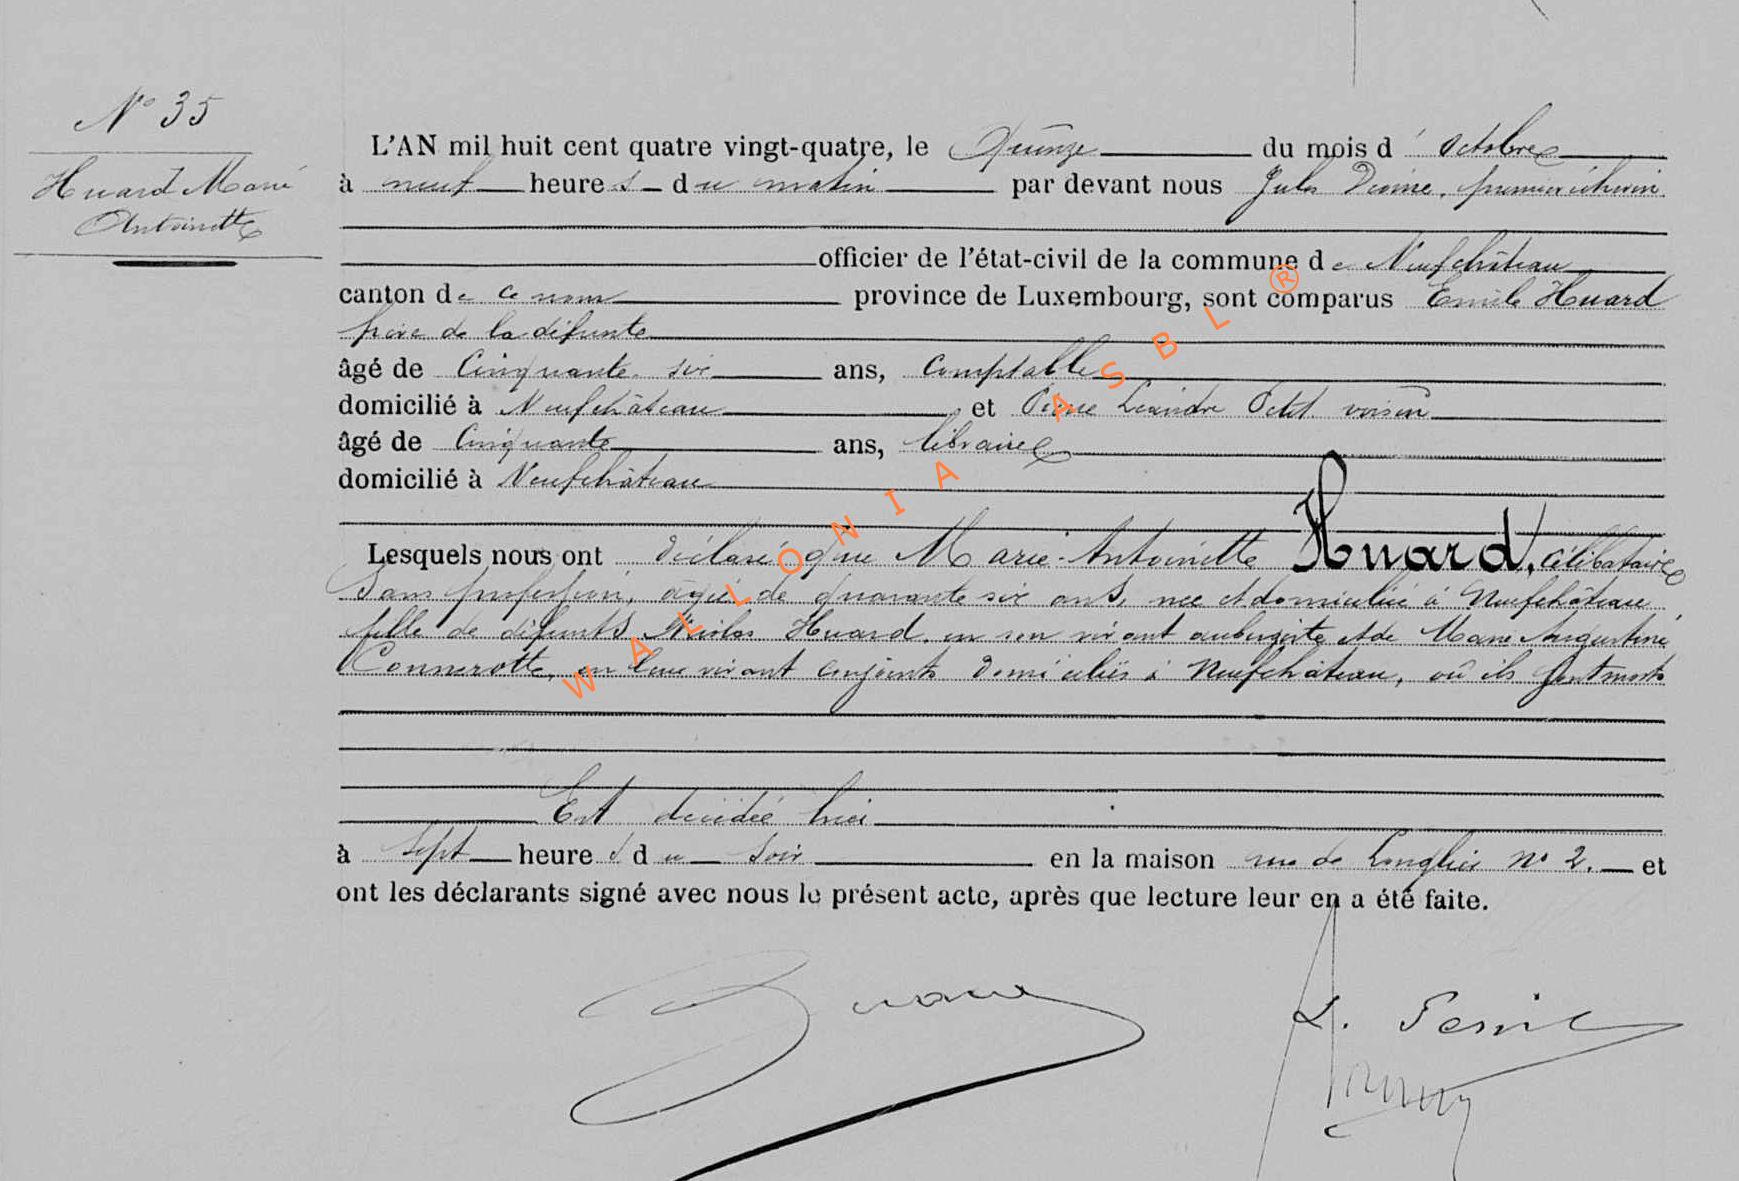 N° 35
Huard Marie
Antoinette
L'AN mil huit cent quatre vingt-quatre, le Quinze du mois d' octobre
à neuf heures du matin par devant nous Jules premier échevin
officier de l'état-civil de la commune de Neufchâteau
canton de ce nom province de Luxembourg, sont comparus Emile Huard
frère de la défunte
âgé de Cinquante six ans, comptable
domicilié à Neufchâteau et Pierre Léandre Petit voisin
âgé de Cinquante ans, libraire
domicilié à Neufchâteau
Lesquels nous ont déclaré que Marie-Antoinette Huard, célibataire
Sans profession, âgée de quarante six ans, née et domiciliée à Neufchâteau
fille de défunts Nicolas Huard en son vivant aubergiste et de Marie Augustine
Connerotte, en leur vivant conjoints domiciliés à Neufchâteau, où ils sont morts
Est décédée hier
à Sept heures du Soir en la maison rue de Longlier n° 2. et
ont les déclarants signé avec nous le présent acte, après que lecture leur en a été faite.
WALLONIA ASBL ®
L.